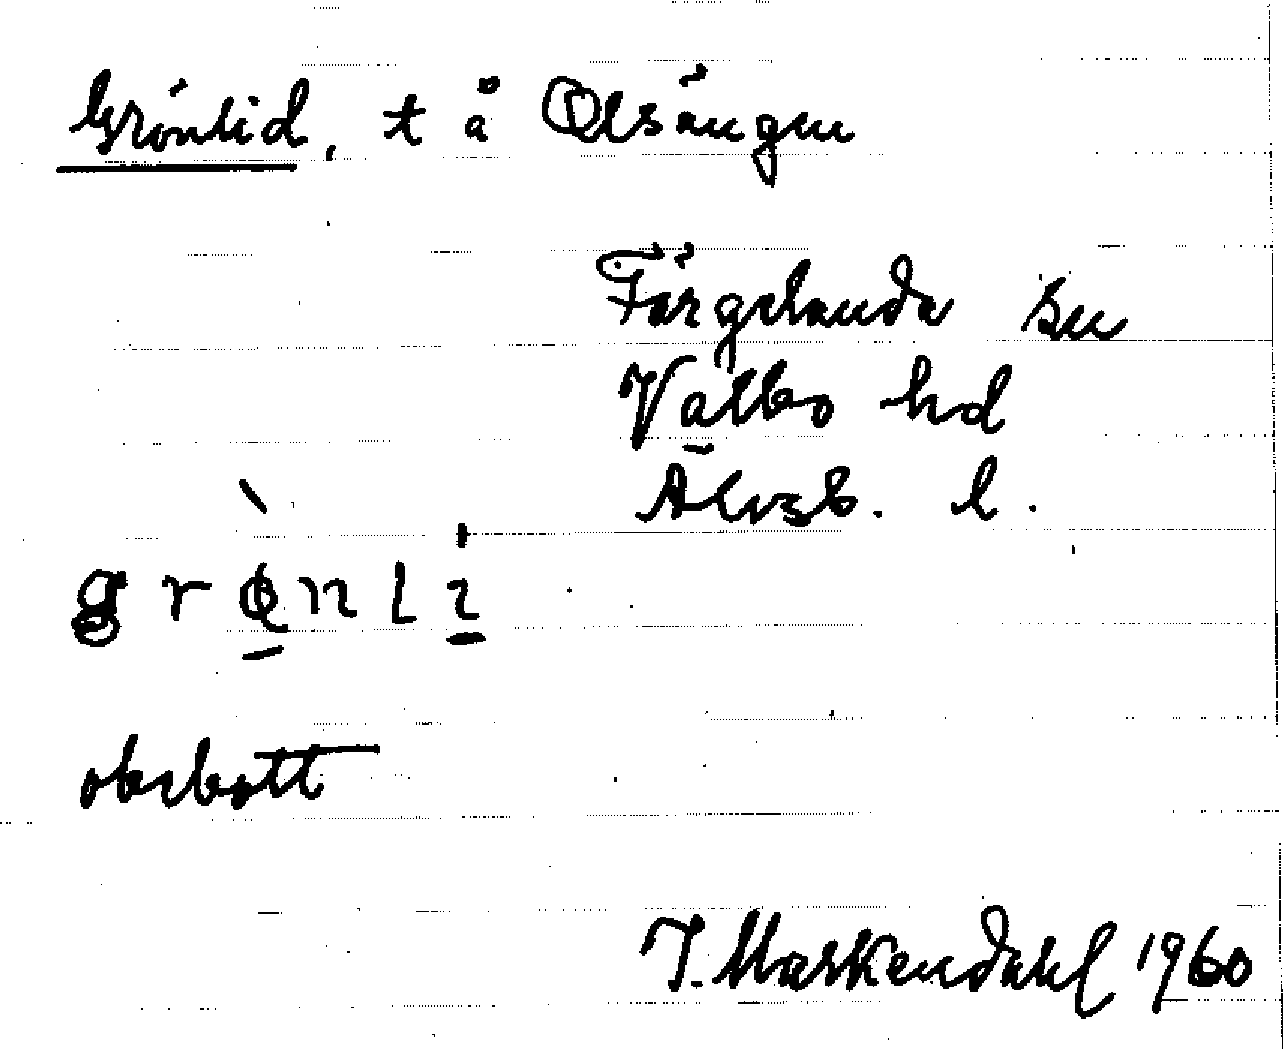 Grönlid, t å Olsängen
Färgelanda sn
Valbo hd
Älvsb. l.
obebott
J. Markendahl 1960